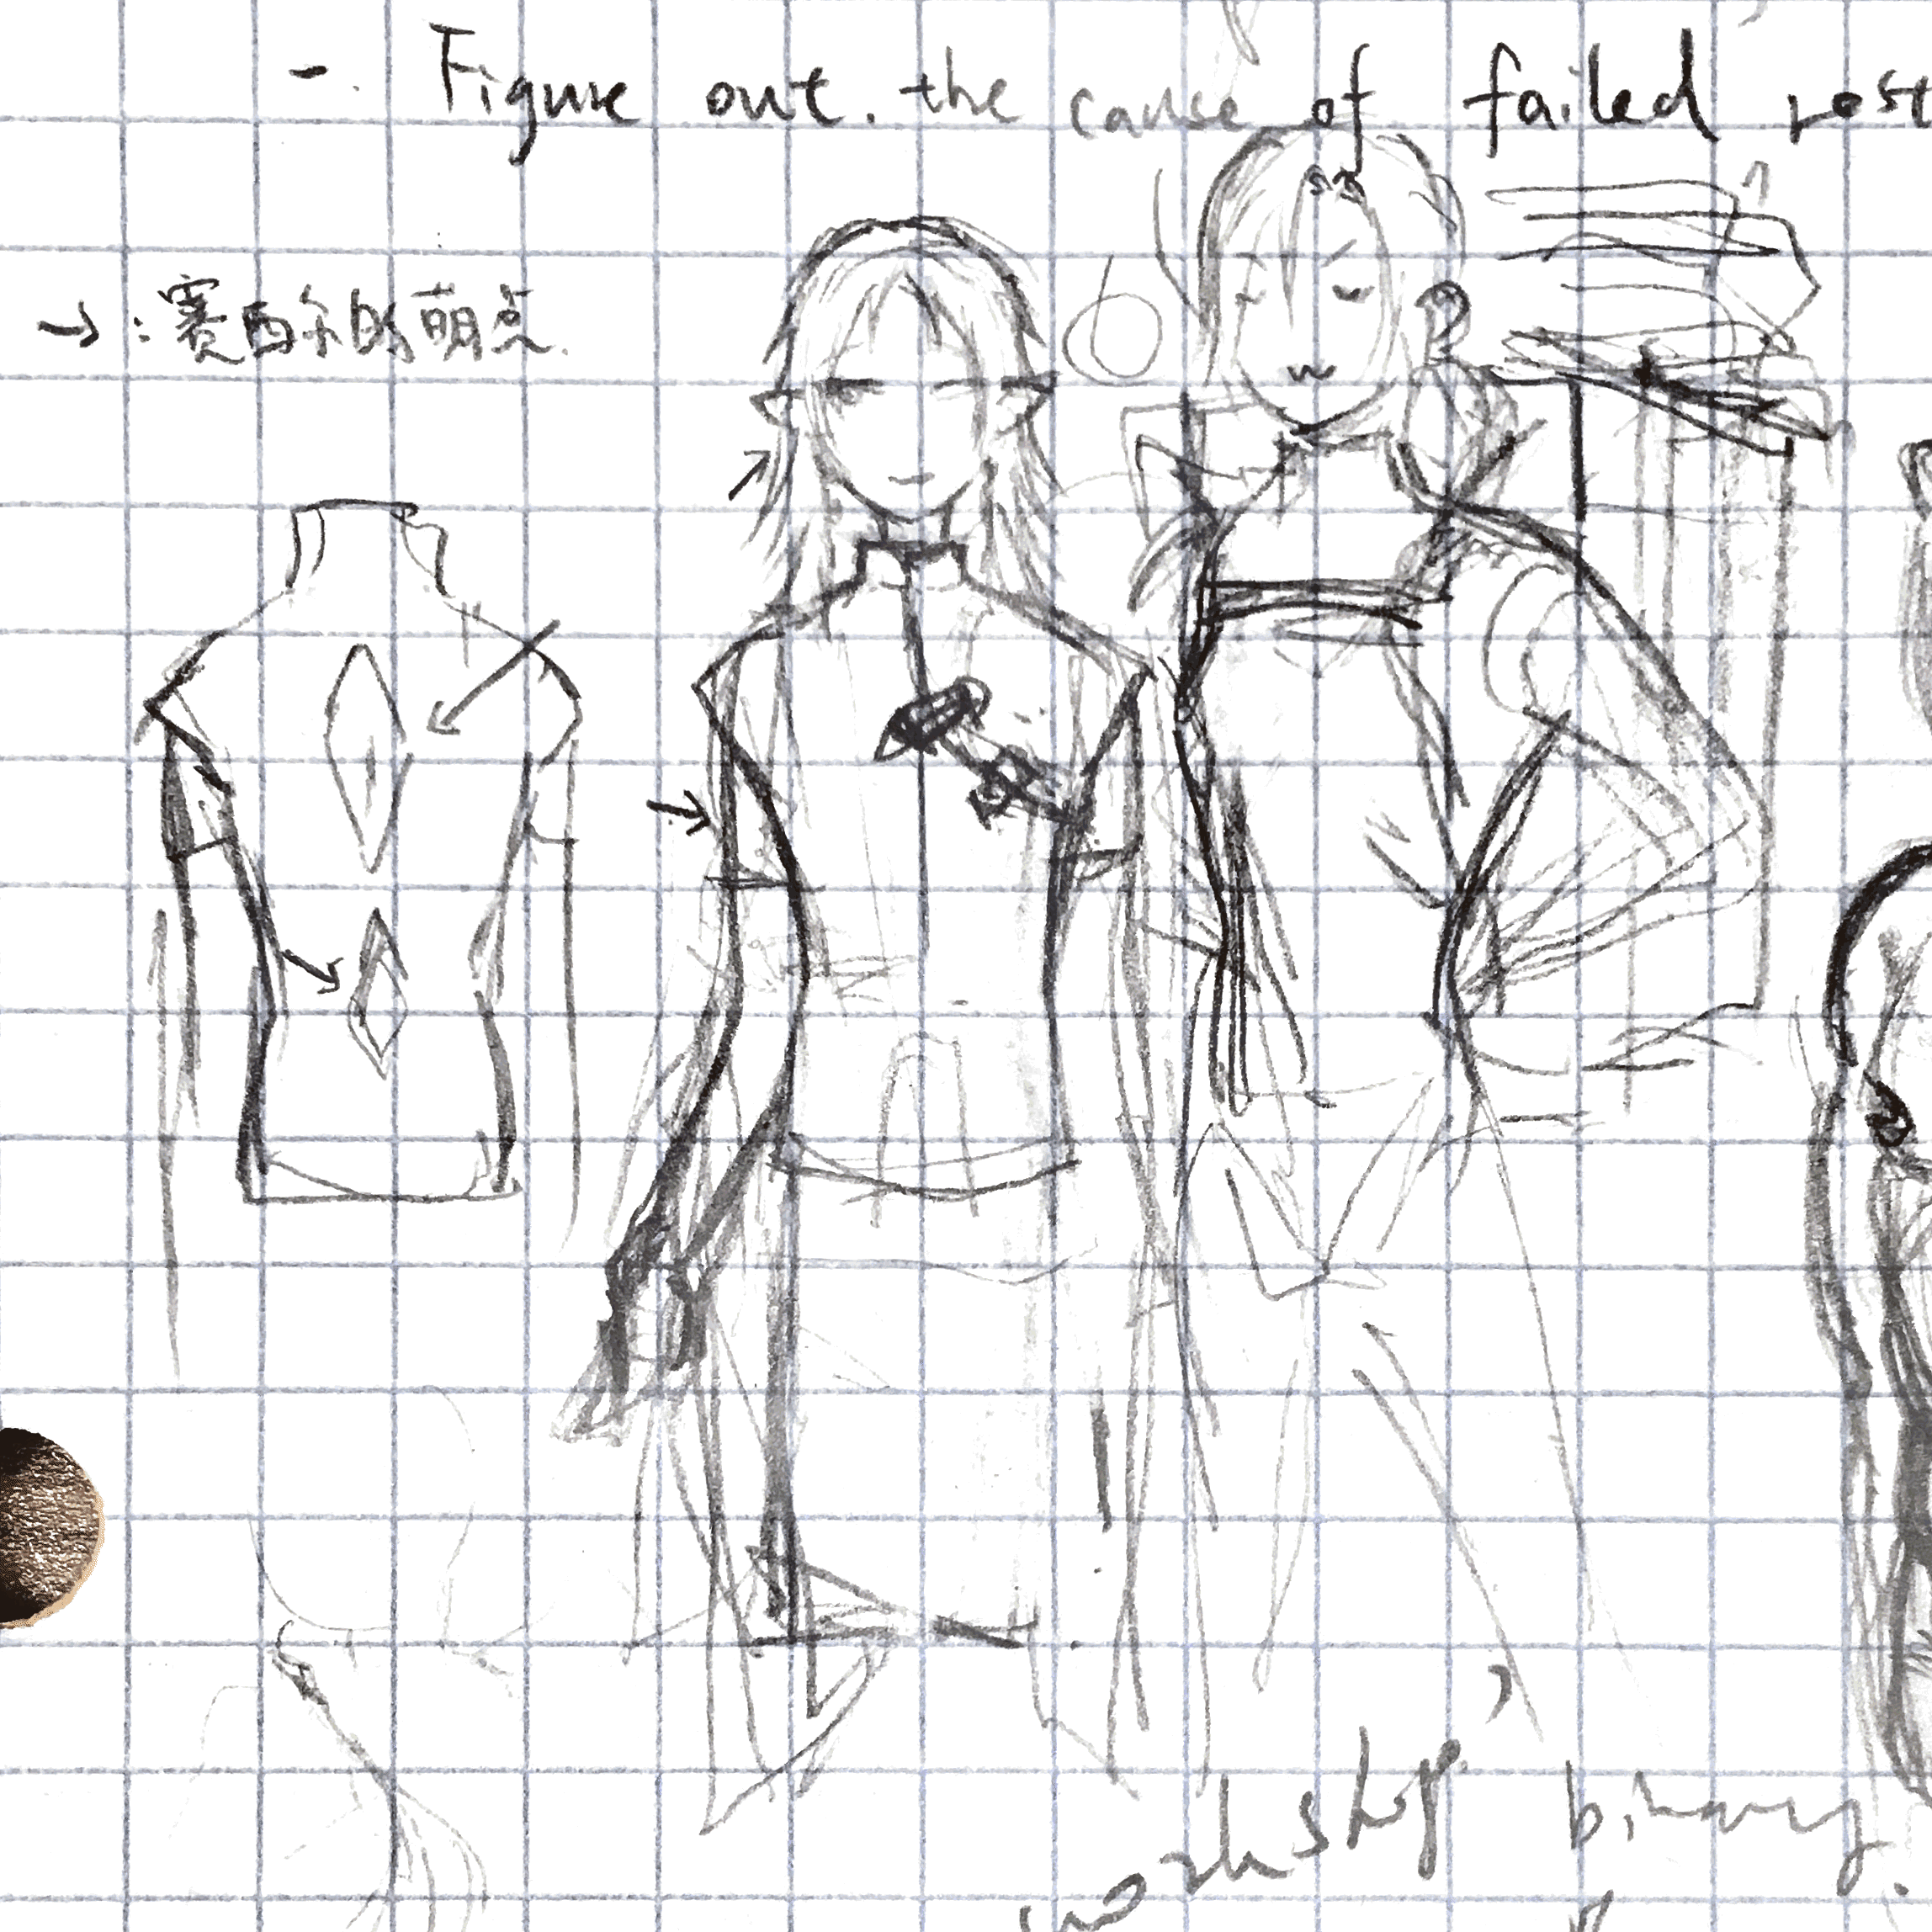 -. Figure out. the cause of failed
→ : 赛西尔的萌点.
workshop binary.